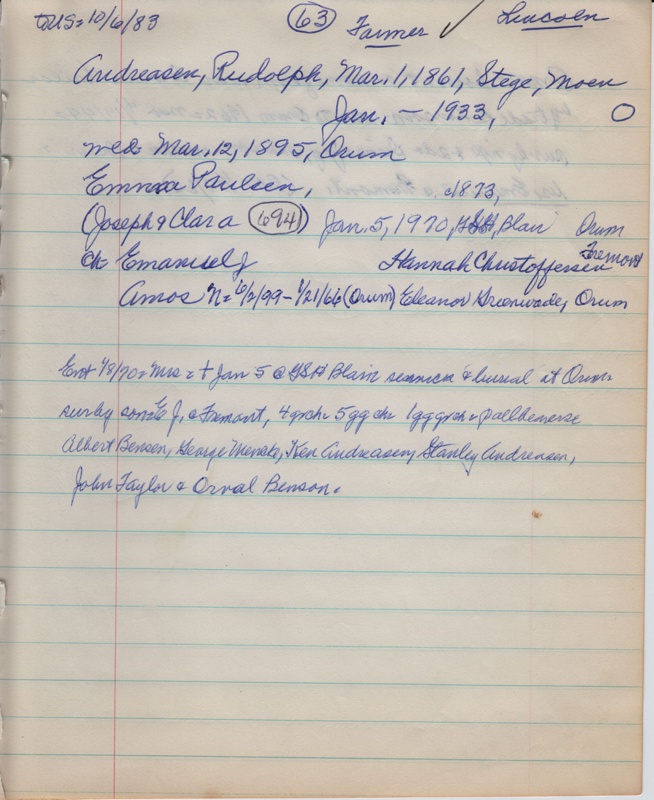 toUS=10/6/83 (63) Farmer ✓ Lincoln
Andreasen, Rudolph, Mar. 1, 1861, Stege, Moen
Jan. — 1933, O
wed Mar. 12, 1895, Orum
Emma Paulsen, 1873,
(Joseph & Clara (694)) Jan. 5, 1970, Blair Orum
ch= Emanuel J Hannah Christoffersen Fremont
Amos n= 6/2/99 - 1/21/66 (Orum) Eleanor Orum
Ent 1/8/70= Mrs = + Jan 5 @ Blair & burial at Orum=
surby son= E J, @ Fremont, 4 grch= 5 gg ch= 1 ggg =
Albert Bensen, George Mencke, Ken Andreasen, Stanley Andreasen,
John Taylor & Orval Benson.